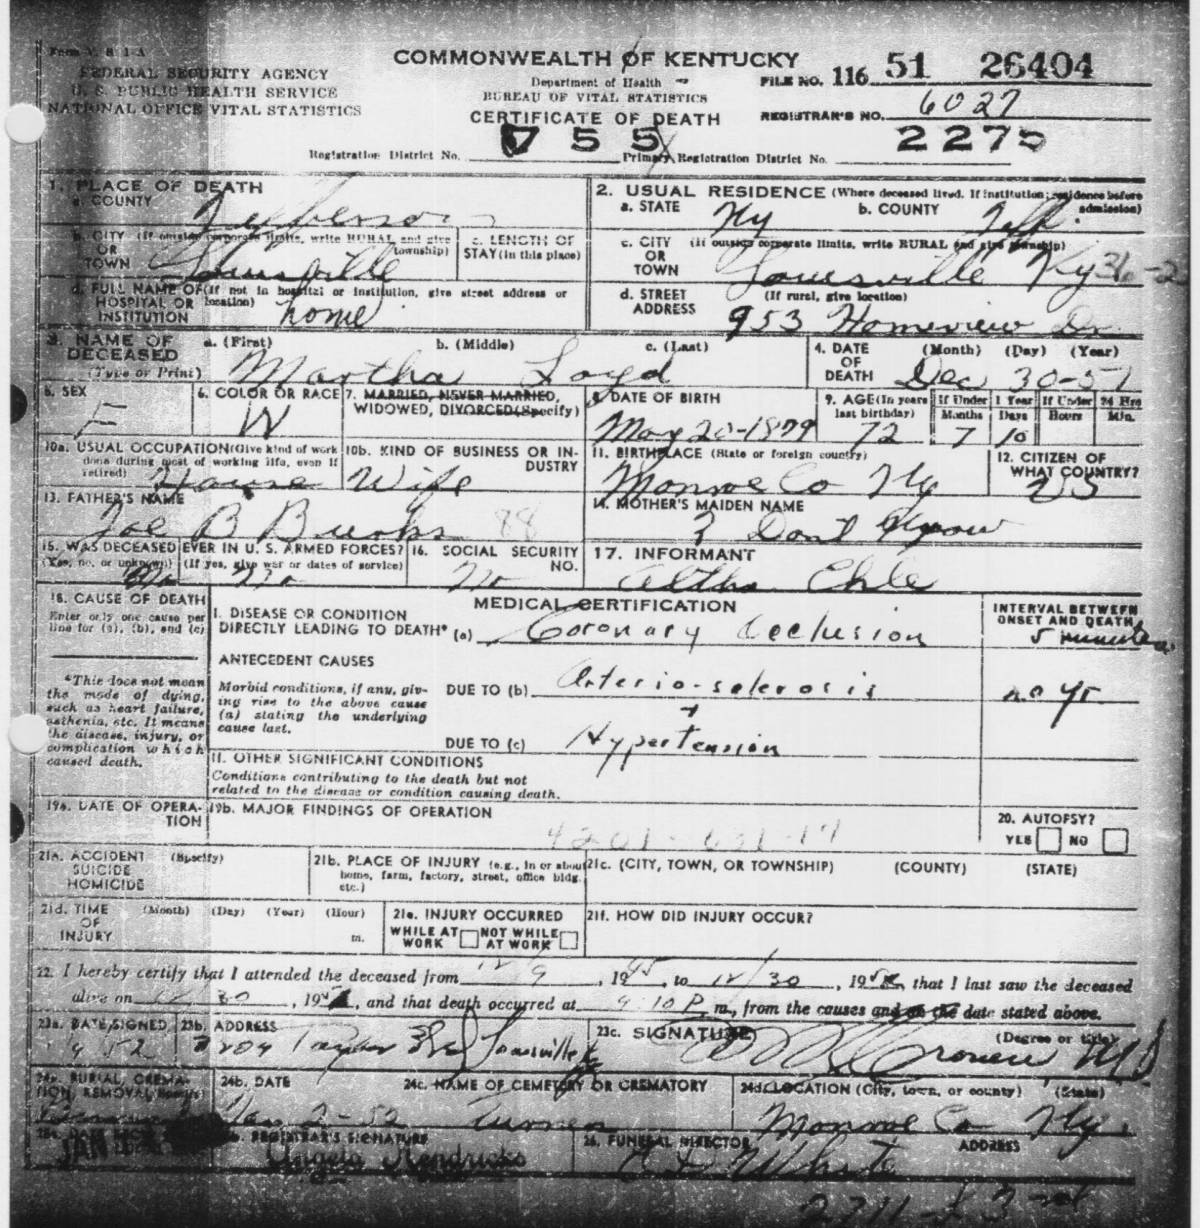 Form V. S. 1-A
FEDERAL SECURITY AGENCY
U. S. PUBLIC HEALTH SERVICE
NATIONAL OFFICE VITAL STATISTICS
COMMONWEALTH OF KENTUCKY
Department of Health
BUREAU OF VITAL STATISTICS
CERTIFICATE OF DEATH
FILE NO. 116 51 26404
REGISTRAR'S NO. 6027
Registration District No. 755
Primary Registration District No. 2275
1. PLACE OF DEATH
a. COUNTY Jefferson
b. CITY (If outside corporate limits, write RURAL and give township)
OR
TOWN Louisville
c. LENGTH OF
STAY (in this place)
d. FULL NAME OF (If not in hospital or institution, give street address or location)
HOSPITAL OR
INSTITUTION home
2. USUAL RESIDENCE (Where deceased lived. If institution; residence before admission)
a. STATE Ky b. COUNTY Jeff.
c. CITY (If outside corporate limits, write RURAL and give township)
OR
TOWN Louisville Ky
d. STREET (If rural, give location)
ADDRESS 953 Homeview Dr.
3. NAME OF DECEASED
(Type or Print)
a. (First) b. (Middle) c. (Last)
Martha Loyd
4. DATE OF DEATH (Month) (Day) (Year)
Dec 30-51
5. SEX
F
6. COLOR OR RACE
W
7. MARRIED, NEVER MARRIED,
WIDOWED, DIVORCED (Specify)
8. DATE OF BIRTH
May 20-1879
9. AGE (In years last birthday) If Under 1 Year Months Days If Under 24 Hrs Hours Min.
72 7 10
10a. USUAL OCCUPATION (Give kind of work done during most of working life, even if retired)
10b. KIND OF BUSINESS OR INDUSTRY
House Wife
11. BIRTHPLACE (State or foreign country)
Monroe Co Ky
12. CITIZEN OF WHAT COUNTRY?
US
13. FATHER'S NAME
Joe B 88
14. MOTHER'S MAIDEN NAME
? Dont Know
15. WAS DECEASED EVER IN U. S. ARMED FORCES?
(Yes, no, or unknown) (If yes, give war or dates of service)
No No
16. SOCIAL SECURITY NO.
No
17. INFORMANT
Altha Ehle
18. CAUSE OF DEATH
Enter only one cause per line for (a), (b), and (c)
*This does not mean the mode of dying, such as heart failure, asthenia, etc. It means the disease, injury, or complication which caused death.
MEDICAL CERTIFICATION
I. DISEASE OR CONDITION
DIRECTLY LEADING TO DEATH* (a) Coronary Occlusion
INTERVAL BETWEEN ONSET AND DEATH
5 minutes
ANTECEDENT CAUSES
Morbid conditions, if any, giving rise to the above cause (a) stating the underlying cause last.
DUE TO (b) Arterio-sclerosis
+
DUE TO (c) Hypertension
II. OTHER SIGNIFICANT CONDITIONS
Conditions contributing to the death but not related to the disease or condition causing death.
19a. DATE OF OPERATION
19b. MAJOR FINDINGS OF OPERATION
20. AUTOPSY?
YES NO
21a. ACCIDENT (Specify)
SUICIDE
HOMICIDE
21b. PLACE OF INJURY (e.g., in or about home, farm, factory, street, office bldg. etc.)
21c. (CITY, TOWN, OR TOWNSHIP) (COUNTY) (STATE)
21d. TIME OF INJURY (Month) (Day) (Year) (Hour) m.
21e. INJURY OCCURRED
WHILE AT WORK NOT WHILE AT WORK
21f. HOW DID INJURY OCCUR?
22. I hereby certify that I attended the deceased from 12/9, 1945, to 12/30, 195, that I last saw the deceased
alive on 12 30, 195, and that death occurred at 9:10 P m., from the causes and on the date stated above.
23a. DATE SIGNED
23b. ADDRESS
Taylor Blvd Louisville Ky
23c. SIGNATURE (Degree or title)
M.D.
24a. BURIAL, CREMATION, REMOVAL (Specify)
24b. DATE
Jan 2-52
24c. NAME OF CEMETERY OR CREMATORY
Turner
24d. LOCATION (City, town, or county) (State)
Monroe Co Ky.
JAN
REGISTRAR'S SIGNATURE
Angela Hendricks
26. FUNERAL DIRECTOR ADDRESS
White